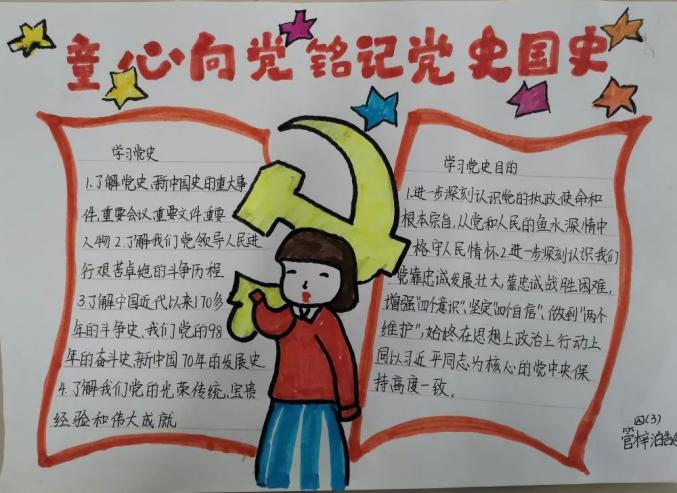 童心向党 铭记党史国史
学习党史
1.了解党史、新中国史的重大事
件、重要会议、重要文件、重要
人物 2.了解我们党领导人民进
行艰苦卓绝的斗争历程
3.了解中国近代以来170多
年的斗争史、我们党的98
年的奋斗史、新中国70年的发展史
4.了解我们党的光荣传统、宝贵
经验和伟大成就
学习党史目的
1.进一步深刻认识党的执政使命和
根本宗旨，从党和人民的鱼水深情中
格守人民情怀2.进一步深刻认识我们
党靠忠诚发展壮大，靠忠诚战胜困难，
增强"四个意识"，坚定"四个自信"，做到"两个
维护"，始终在思想上政治上行动上
同以习近平同志为核心的党中央保
持高度一致。
四(3)
管梓